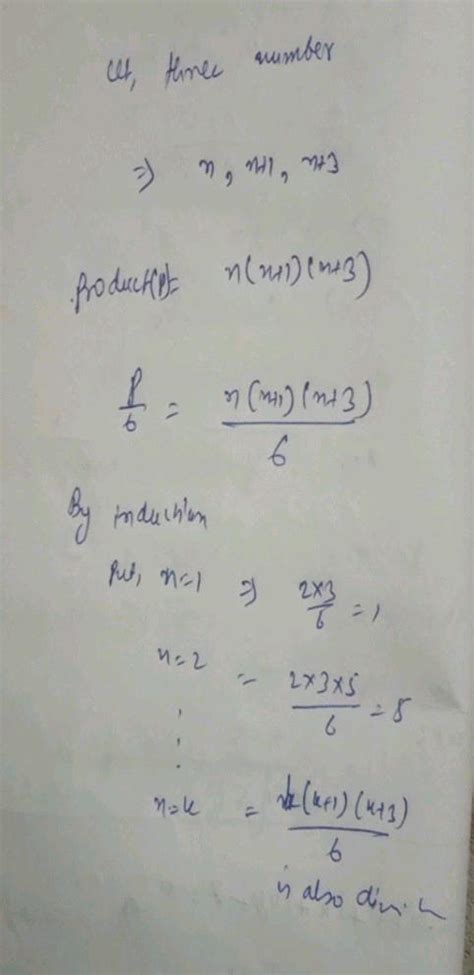 let, three number
⇒ n, n+1, n+3
Product(P)= n(n+1)(n+3)
P/6 = n(n+1)(n+3)/6
By induction
Put, n=1 ⇒ 2×3/6 = 1
n=2 = 2×3×5/6 = 5
⋮
n=k = k(k+1)(k+3)/6
is also